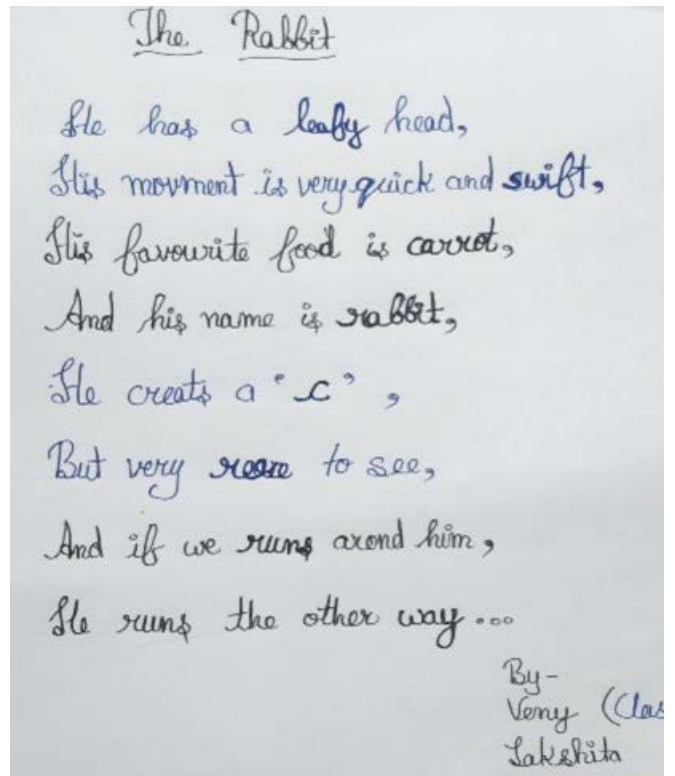 The Rabbit
He has a leafy head,
His movment is very quick and swift,
His favourite food is carrot,
And his name is rabbit,
He creats a ' c ' ,
But very to see,
And if we runs arond him,
He runs the other way...
By-
Veny (Clas
Lakshita